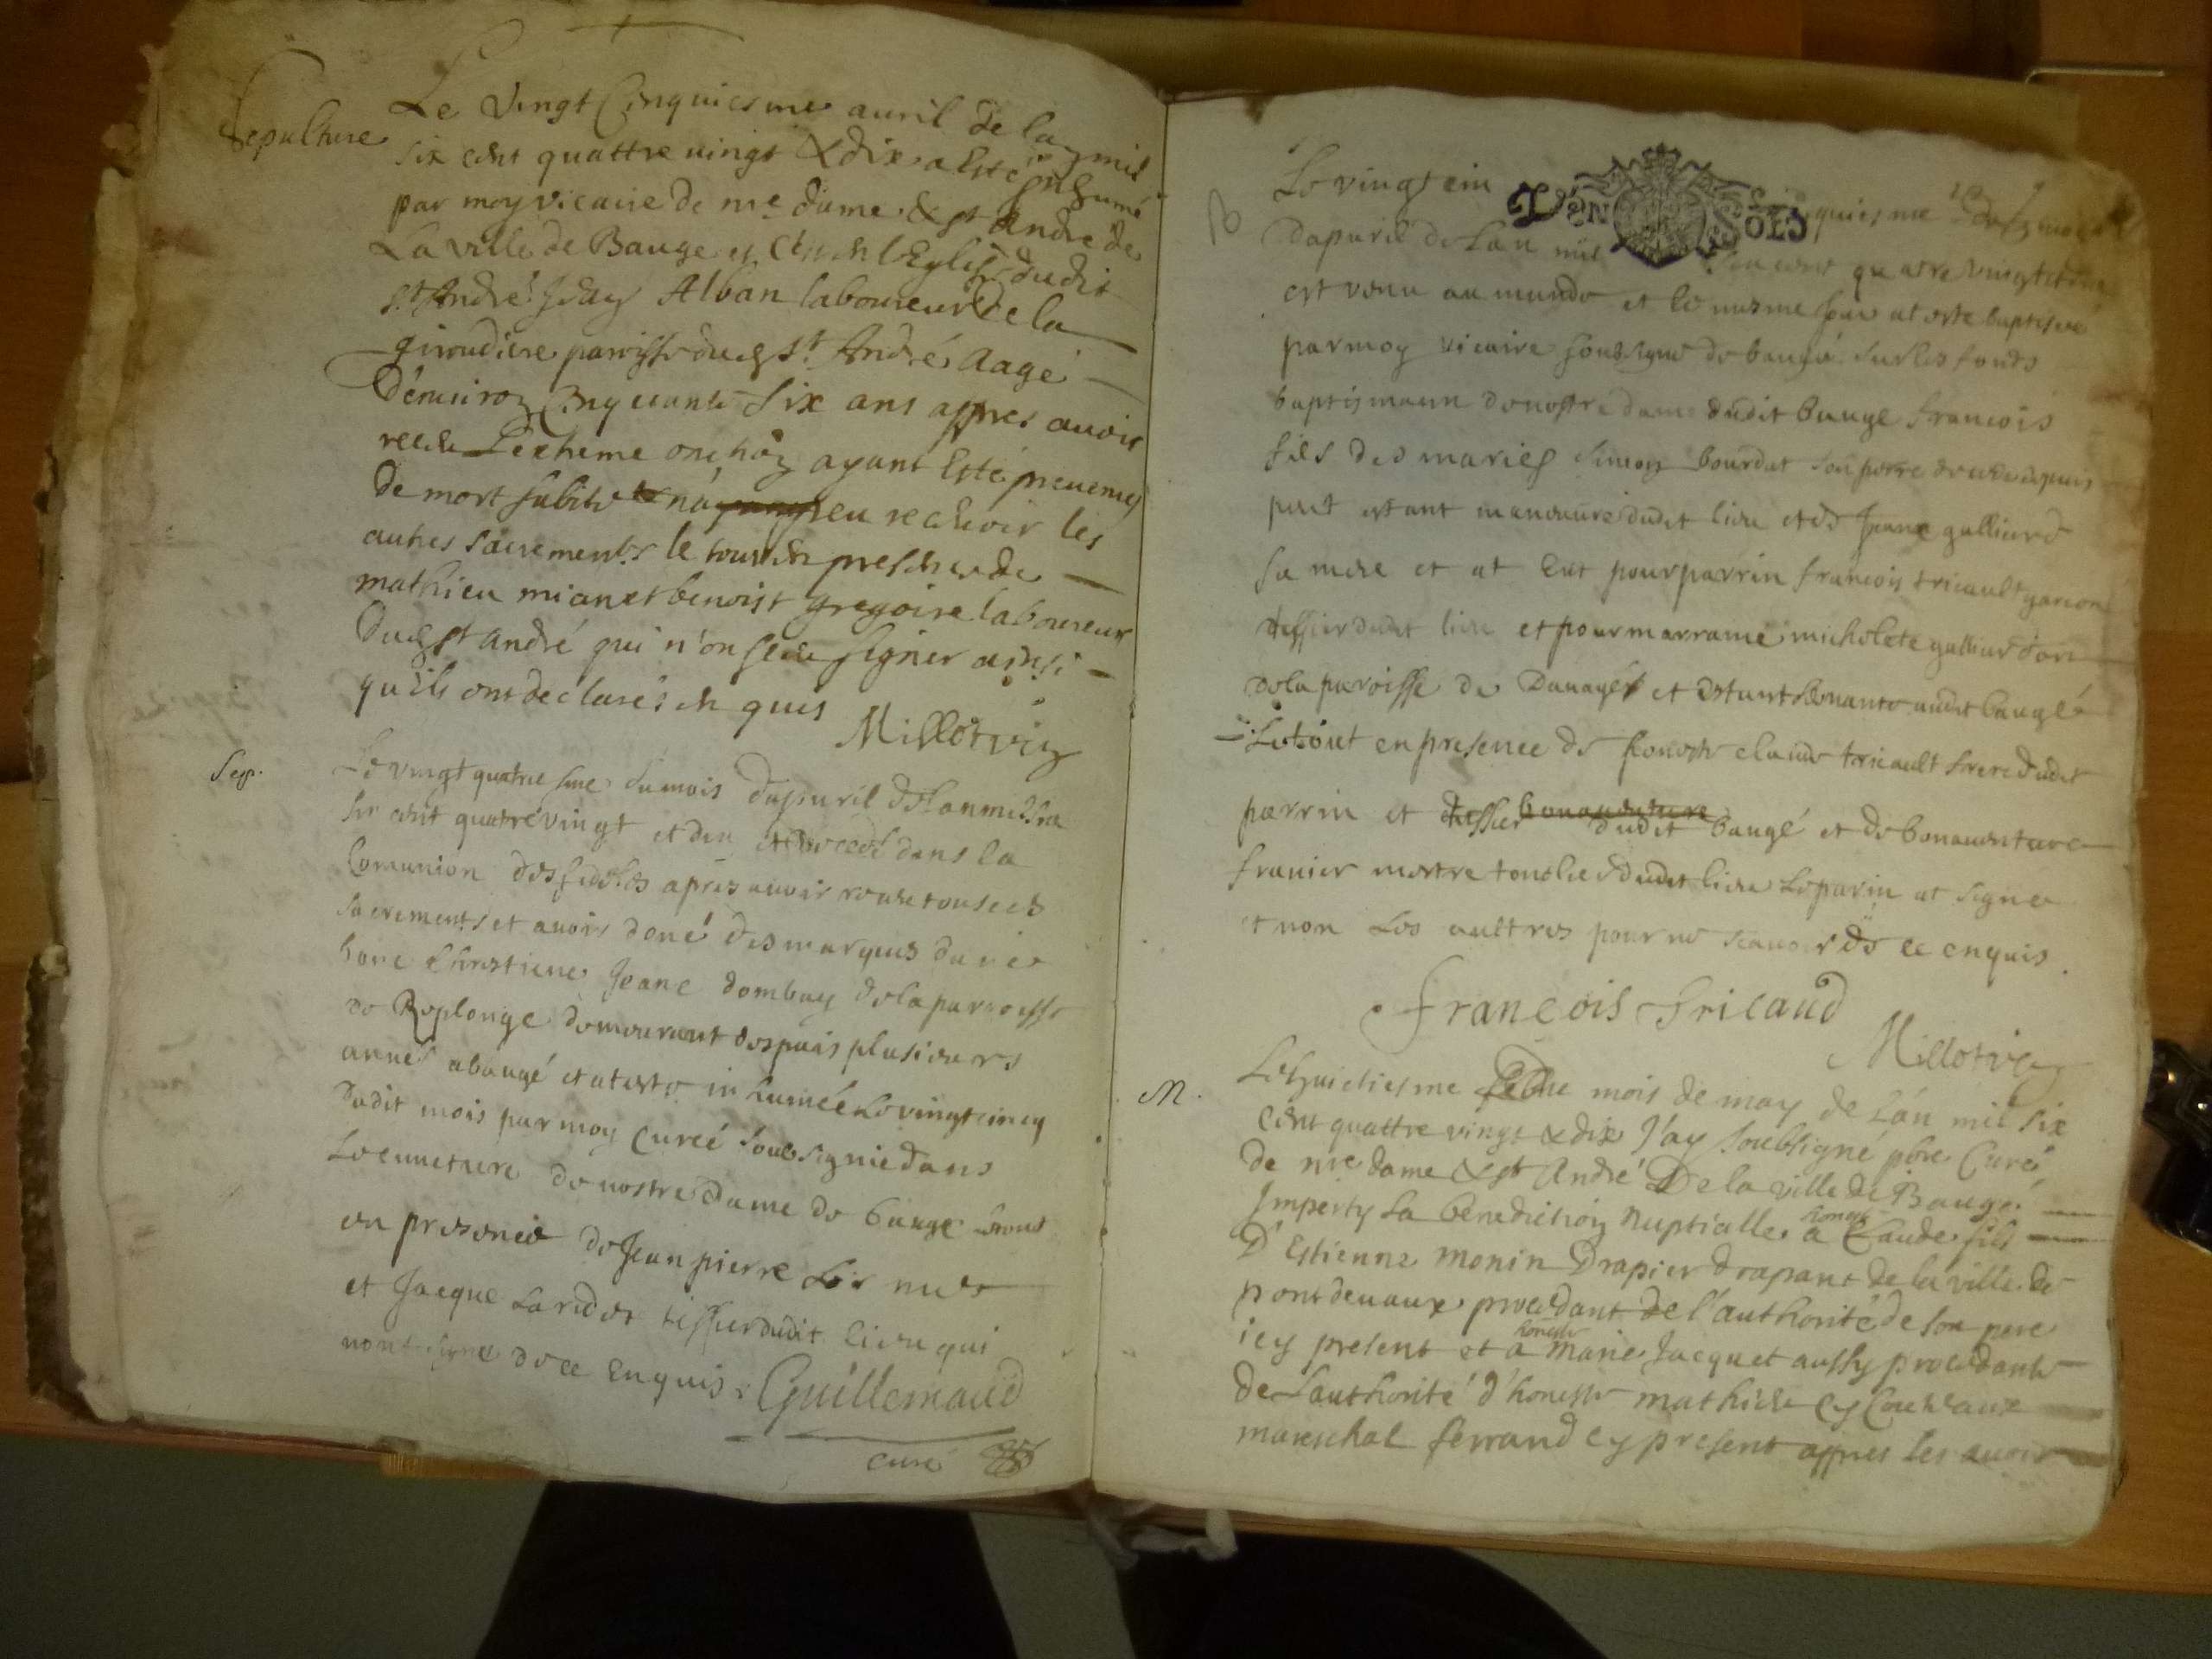 Sepulture
Le vingt Cinquiesme auril de lan mil
six cent quattre uingt & dix a Esté inhumé
par moy vicaire de nre dame & st André de
La ville de Baugé et en l'Eglise dudit
st André Alban laboureur De la
giroudiere paroisse dud st André Aagé
D'enuiron Cinquante Six ans appres auoir
receu L'extreme onction ayant Esté preuenu
De mort subite n'a peu receuoir les
autres sacrements le tout en presence de
mathieu mian et benoist gregoire laboureur
Dud st andré qui n'on sceu signer ainsi
qu'ils ont declarés en quis
Millot vic
Sep.
Le vingt quatriesme du mois dapuril de lan mil
six cent quatre vingt et dix decedé dans la
Comunion des fideles apres auoir receu tous ces
sacrements et auoir doné des marques du vie
bone Chrestiene Jeane dombay de la paroisse
de Replonge demeurant despuis plusieurs
année a baugé et at esté in humée Le vingt cincq
dudit mois par moy Curé soubsigné dans
Le cimeture de nostre dame de baugé
en presence de Jean pierre
et Jacque Laridet tissier dudit lieu qui
nont signé de ce Enquis. Guillemaud
curé
B
Le vingt cin quiesme
VEN SOLS
Dapuril de Lan mil six cent quatre vingt et dix
est venu au munde et le mesme jour at esté baptisé
par moy vicaire soubsigné de baugé sur les fonds
baptismaux de nostre dame dudit baugé francois
fils des mariés simon bourdat son perre
estant manouure dudit lieu et de Jeane galliard
sa mere et at Eut pour parrin francois tricault garcon
tissier dudit lieu et pour marraine micholete galliard
de la paroisse de Dauayés et audit baugé
Le tout en presence de honoste claude tricault frere dudit
parrin et tissier bonauenture dudit baugé et de bonauenture
franier mestre dudit lieu Le parin at signé
et non Les aultres pour ne scauoir de ce enquis.
francois Tricaud
Millot vic
M.
Le huictiesme mois de may de L'an mil six
Cent quattre vingt & dix J'ay soubsigné pbre Curé
de nre dame & st André De la ville de Baugé
Imperty La benediction nuptialle a honeste Claude fils
D'Estienne monin Drapier drapant de la ville de
pontdeuaux procedant de l'authorité de son pere
icy present et a honeste marie Jacquet aussy procedante
de Lauthorité d'honeste mathieu
mareschal ferrand cy present appres les auoir